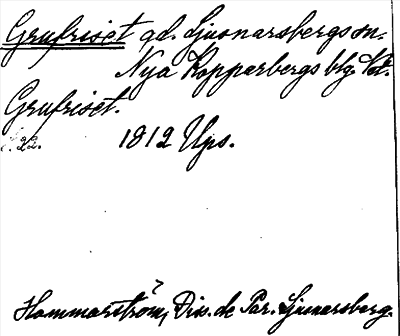 Grufriset gd. Ljusnarsbergs sn.
Nya Kopparbergs blg. Vst.
Grufriset.
s. 22. 1812 Ups.
Hammarström, Dis. de Par. Ljusnarsberg.